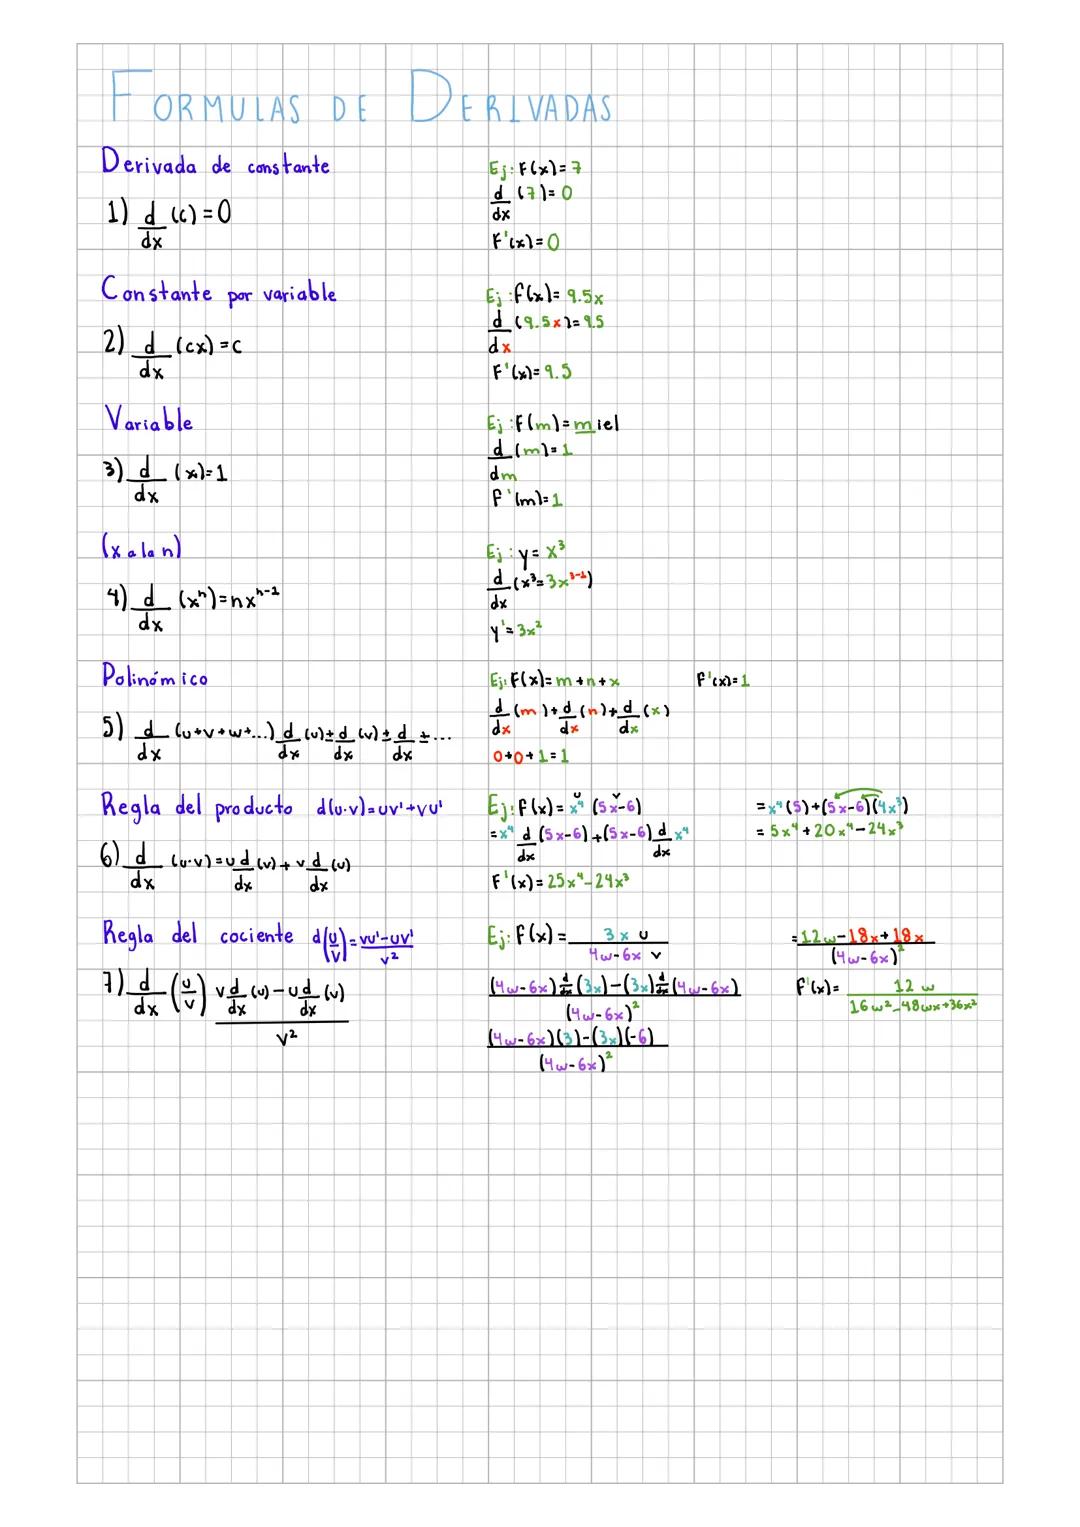 FORMULAS DE DERIVADAS
Derivada de constante
1) d/dx (c) = 0
Ej: F(x) = 7
d/dx (7) = 0
F'(x) = 0
Constante por variable
2) d/dx (cx) = c
Ej: f(x) = 9.5x
d/dx (9.5x) = 9.5
F'(x) = 9.5
Variable
3) d/dx (x) = 1
Ej: F(m) = miel
d/dm (m) = 1
F'(m) = 1
(x a la n)
4) d/dx (xⁿ) = nxⁿ⁻¹
Ej: y = x³
d/dx (x³ = 3x³⁻¹)
y' = 3x²
Polinómico
5) d/dx (u+v+w+...) d/dx (u) ± d/dx (v) ± d/dx ± ...
Ej: F(x) = m+n+x
d/dx (m) + d/dx (n) + d/dx (x)
0+0+1=1
F'(x) = 1
Regla del producto d(u·v) = uv' + vu'
6) d/dx (u·v) = u d/dx (v) + v d/dx (u)
Ej: f(x) = x⁴ (5x-6)
u v
= x⁴ d/dx (5x-6) + (5x-6) d/dx x⁴
F'(x) = 25x⁴ - 24x³
= x⁴(5) + (5x-6)(4x³)
= 5x⁴ + 20x⁴ - 24x³
Regla del cociente d(u/v) = vu'-uv' / v²
7) d/dx (u/v) v d/dx (u) - u d/dx (v) / v²
Ej: f(x) = 3x u / 4w-6x v
(4w-6x) d/dx (3x) - (3x) d/dx (4w-6x) / (4w-6x)²
(4w-6x)(3)-(3x)(-6) / (4w-6x)²
= 12w-18x+18x / (4w-6x)²
F'(x) = 12w / 16w²-48wx+36x²